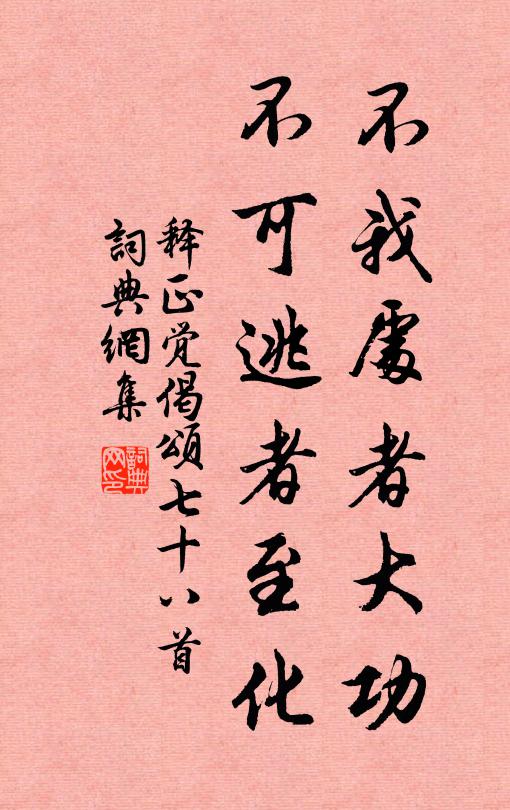 不我處者大功
不可逃者至化
释正觉偈頌七十八首
詞典網集
詞典
网印